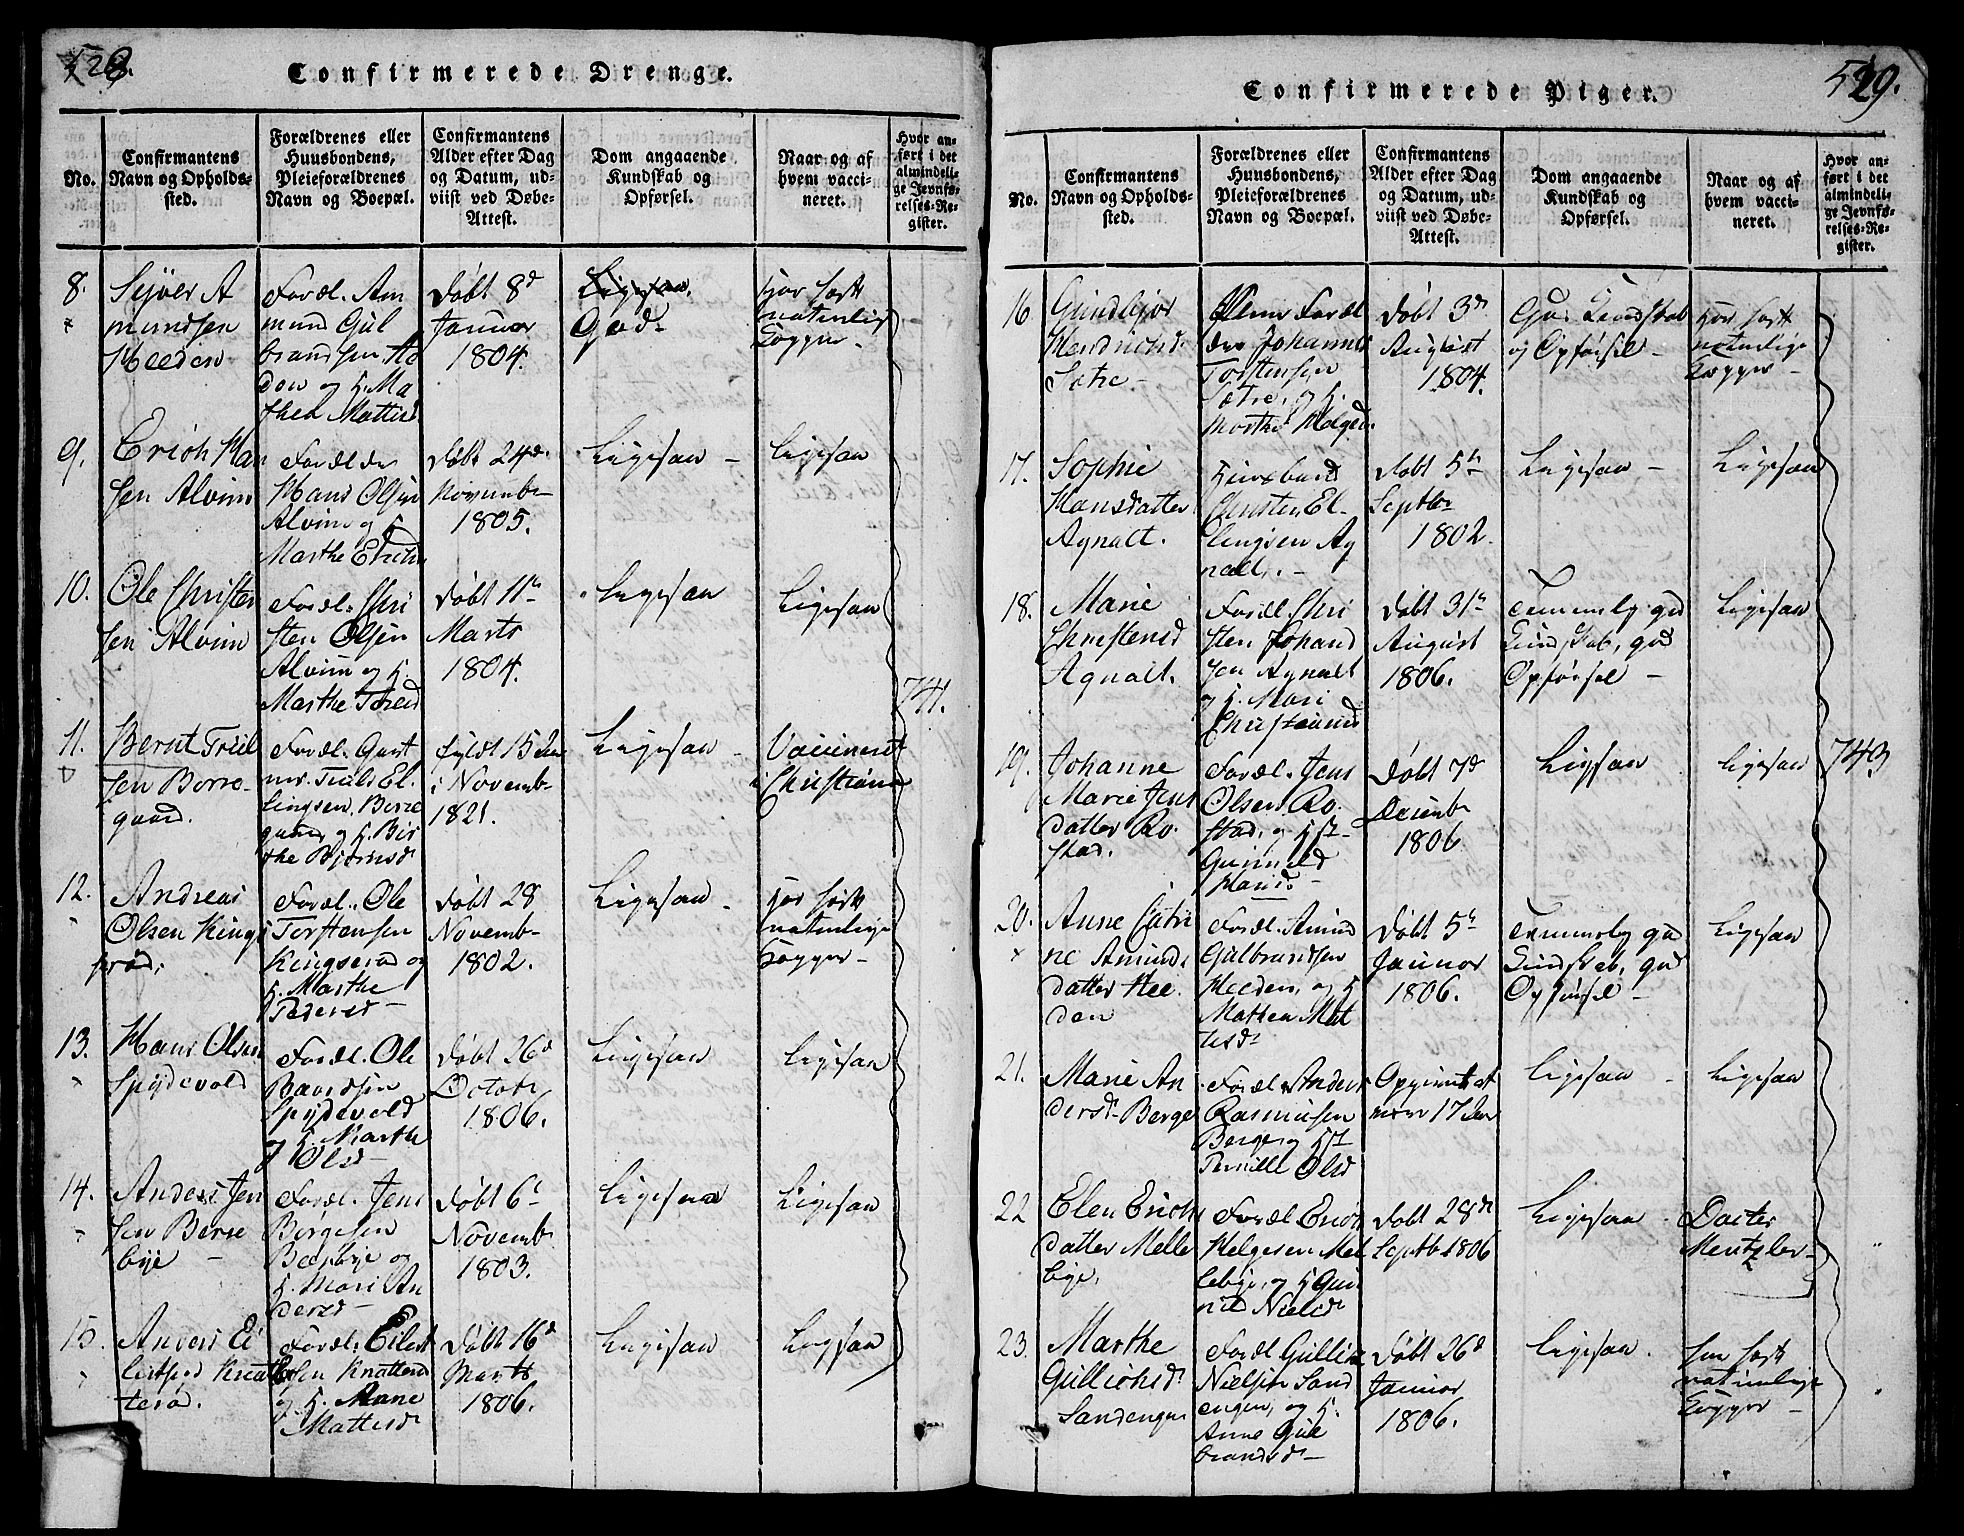 528.
Confirmerede Drenge.
No.
Confirmantens
Navn og Opholds-
sted.
Forældrenes eller
Huusbondens,
Pleieforældrenes
Navn og Boepæl.
Confirmantens
Alder efter Dag
og Datum, ud-
viist ved Døbe-
Attest.
Dom angaaende
Kundskab og
Opførsel.
Naar og af
hvem vacci-
neret.
Hvor an-
ført i det
almindeli-
ge Jevnfø-
relses-Re-
gister.
8.
Syver A
mundsen
Heeden
Foræl. Am
mund Gul
brandsen He
den og H. Ma
thea Mattisd
Døbt 8d
Januar
1804.
Ligesaa.
God
har havt
naturlige
Kopper
9.
Erich Han
sen Alvim
Foræld
Hans Olsen
Alvim og H
Marthe Erichs
Døbt 24d
Novemb
1805.
Ligesaa
Ligesaa
10.
Ole Christen
sen Alvim
Foræl. Chri
sten Olsen
Alvim og H.
Marthe Toresd
Døbt 11te
Marts
1804.
Ligesaa
Ligesaa
741.
11.
Bernt Truel
sen Borre-
gaard.
Foræl. Gart
ner. Truls El
lingsen Borre
gaard og H. Bir
the Bjørnsd
fyldt 15 Aar
i Novemb
1821.
Ligesaa
Vaccineret
i Christiania
12.
Andreas
Olsen Kings
rød,
Foræl. Ole
Torstensen
Kingserød og
H. Marthe
Pedersd
Døbt 28
Novemb
1802.
Ligesaa
har havt
naturlige
Kopper
13.
Hans Olsen
Spydevold
Foræl. Ole
Bavidsen
Spydevold
og H. Marthe
Olsd
Døbt 26d
Octobr
1806.
Ligesaa
Ligesaa
14.
Anders Jen
sen Berse
bye
Foræl. Jens
Børgesen
Bersbye og
H. Mari An
dersd
Døbt 6d
Novemb
1803.
Ligesaa
Ligesaa
15.
Anders Ei
lertsen Knat
terød.
Foræl. Eilert
sen Knatterød
og H. Anne
Mattisd
Døbt 16d
Marts
1806.
Ligesaa
Ligesaa
529.
Confirmerede Piger.
No.
Confirmantens
Navn og Opholds-
sted.
Forældrenes eller
Huusbondens,
Pleieforældrenes
Navn og Boepæl.
Confirmantens
Alder efter Dag
og Datum, ud-
viist ved Døbe-
Attest.
Dom angaaende
Kundskab og
Opførsel.
Naar og af
hvem vacci-
neret.
Hvor an-
ført i det
almindeli-
ge Jevnfø-
relses-Re-
gister.
16
Gundbjør
Hendrichsd
Sætre
Pleie Foræl
dre Johannes
Torstensen
Sætre, og H.
Marthe Helgesd.
Døbt 3d
August
1804.
God Kundskab
og Opførsel
har havt
naturlige
Kopper
17.
Sophie
Hansdatter
Agnalt.
Huusbond
Christen El
lingsen Ag
nalt.
Døbt 5te
Septbr
1802.
Ligesaa
Ligesaa
18.
Marie
Christensd
Agnalt.
Foræl. Chri
sten Johand
sen Agnalt
og H. Mari
Christiansd
Døbt 31te
August
1806.
Temmelig god
Kundskab, god
Opførsel
Ligesaa
19.
Johanne
Marie Jens
datter Ro.
stad.
Foræl. Jens
Olsen Ro.
stad, og Hst
Gunnild
Hansd
Døbt 7d
Decemb
1806
Ligesaa
Ligesaa
743
20.
Anne Catri
ne Amund
datter Hee
den
Foræl. Amund
Gulbrandsen
Heeden, og H
Mathea Mat
tisd
Døbt 5te
Januar
1806.
Temmelig god
Kundskab, god
Opførsel
Ligesaa
21.
Marie An
dersd Berge
Foræl. Anders
Rasmusen
Berge og Hst
Pernille Olsd
Opgivet at
være 17 Aar
Ligesaa
Ligesaa
22
Elen Erichs
datter Melle
bye.
Foræl Erich
Helgesen Mel
lebye, og H Gun
nild Nielsd
Døbt 28de
Septbr 1806
Ligesaa
Docter
Mentzler
23.
Marthe
Gullichsd
Sandengen
Foræl Gullik
Nielsen Sand
engen, og H.
Anne Gul
brandsd
Døbt 26d
Januar
1806.
Ligesaa.
har havt
naturlige
Kopper